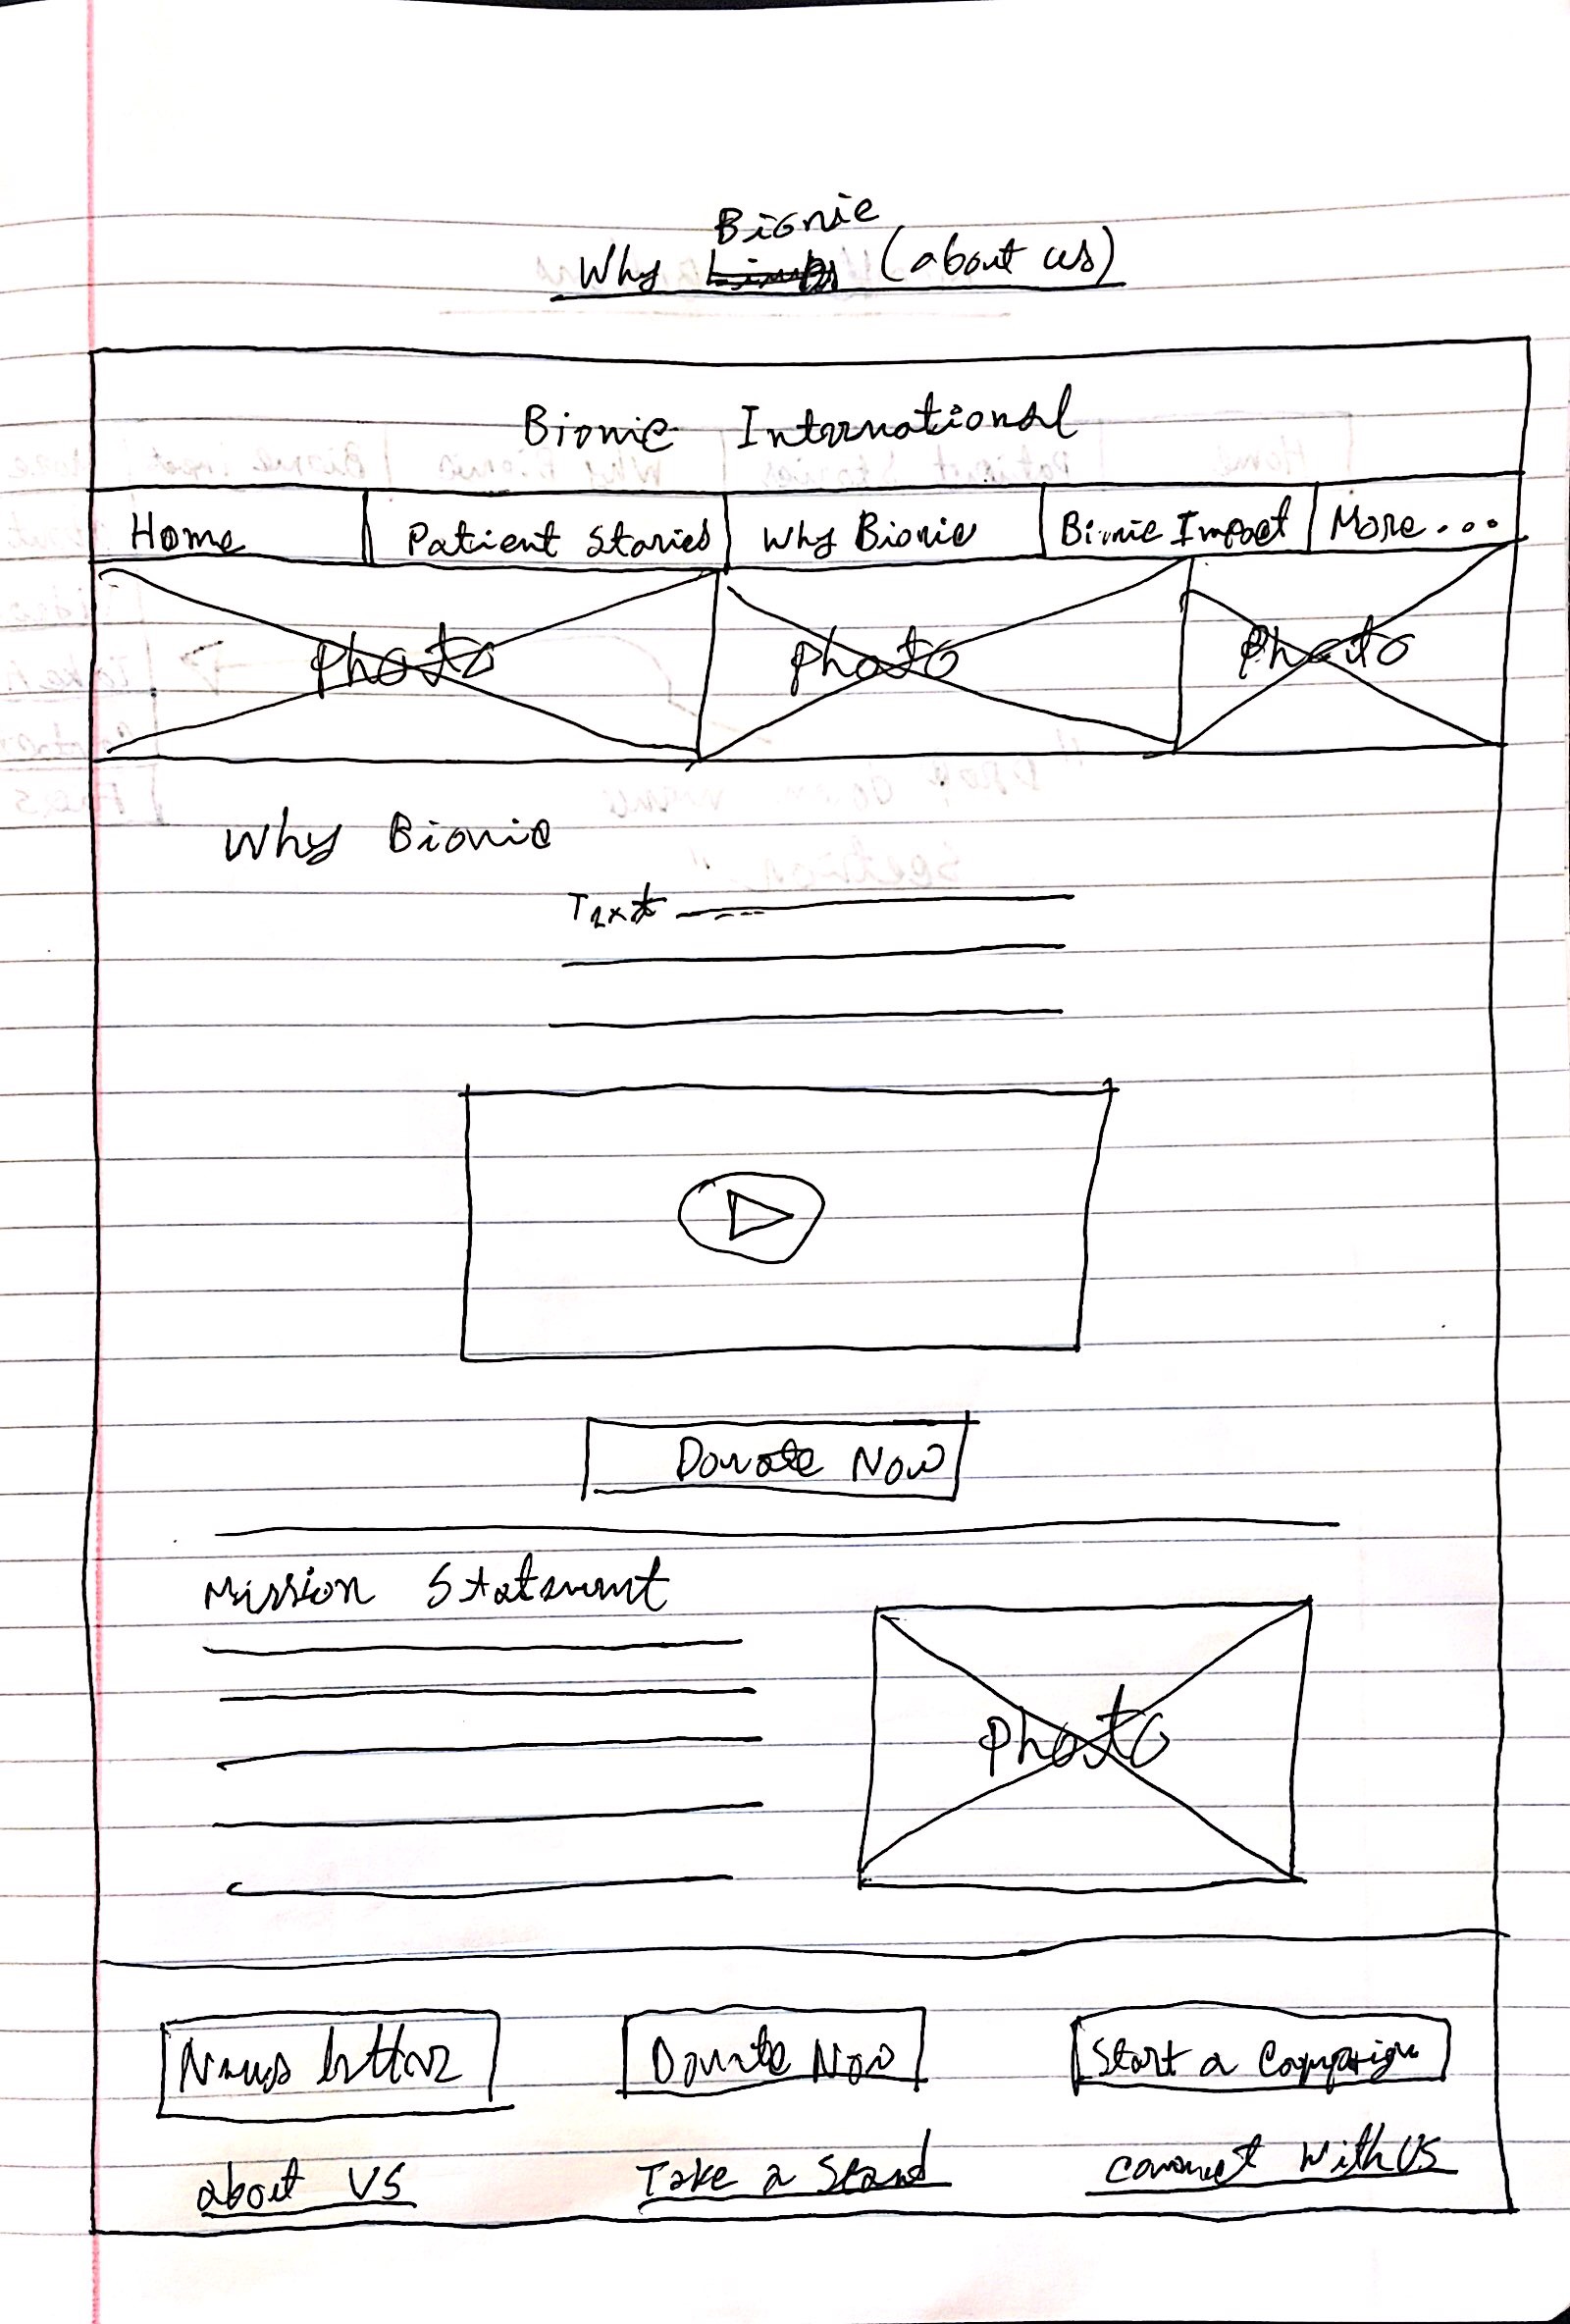 Bionic
Why (about us)
Bionic International
Home Patient Stories Why Bionic Bionic Impact More...
Photo Photo Photo
Why Bionic
Text
Donate Now
Mission Statement
Photo
News letter Donate Now Start a Campaign
about US Take a Stand Connect With US